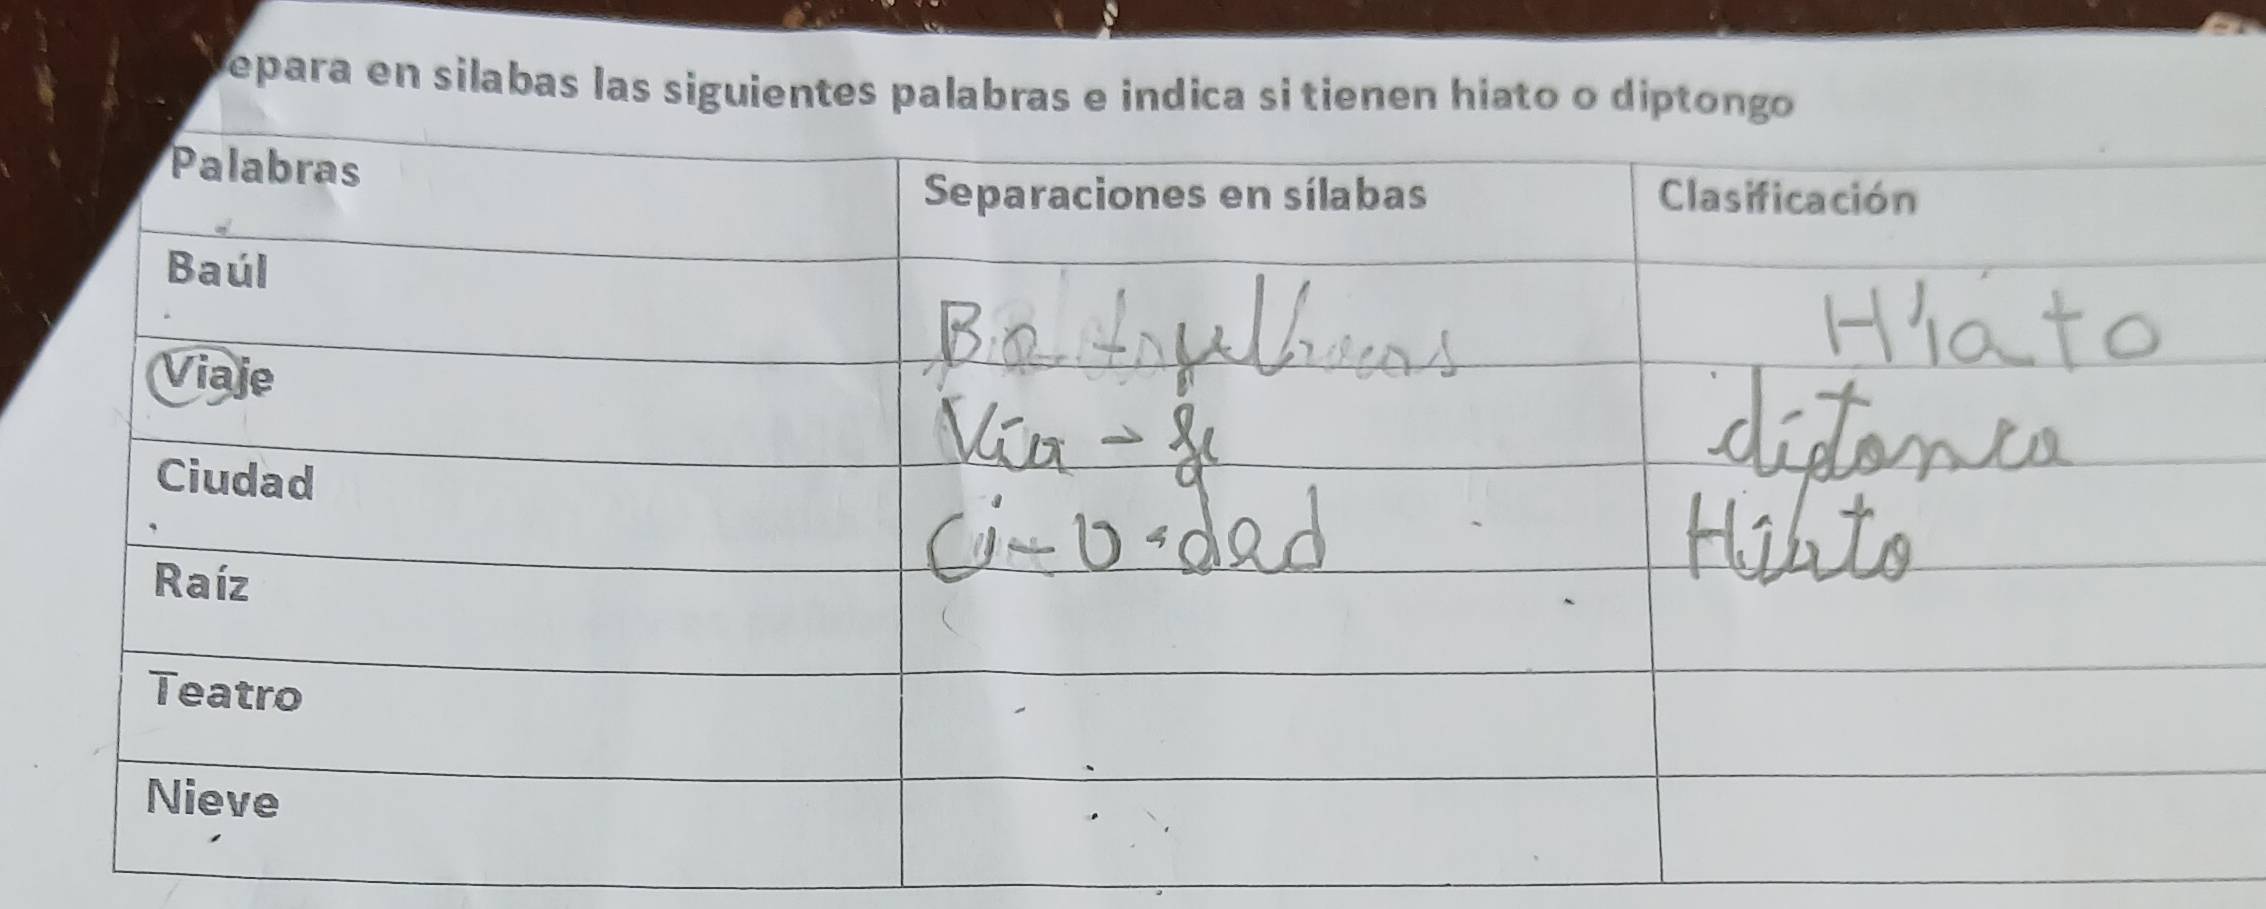 epara en silabas las siguientes palabras e indica si tienen hiato o diptongo
Palabras Separaciones en sílabas Clasificación
Baúl Hiato
Viaje Via - je diptonco
Ciudad Ci-u-dad Hiato
Raíz
Teatro
Nieve